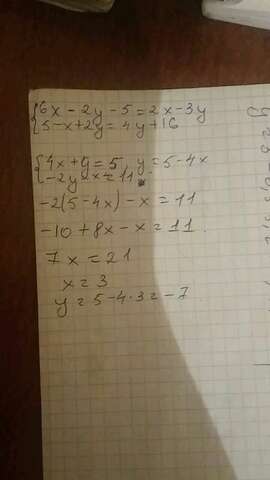 {6x - 2y - 5 = 2x - 3y
5 - x + 2y = 4y + 16
{4x + y = 5, y = 5 - 4x
-2y - x = 11
-2(5 - 4x) - x = 11
-10 + 8x - x = 11.
7x = 21
x = 3
y = 5 - 4 · 3 = -7